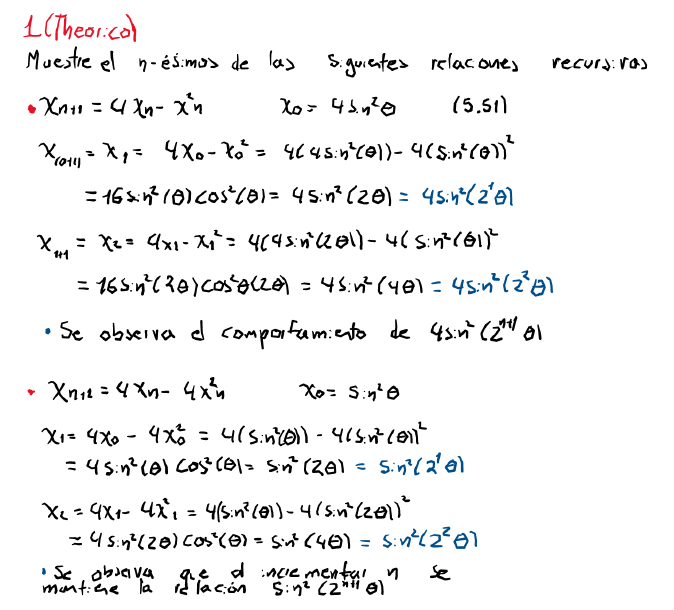 1 (Theorico)
Muestre el n-ésimos de las siguientes relaciones recursivas
• Xn+1 = 4Xn - X²n   X0 = 4sin²θ   (5.51)
X(0+1) = X1 = 4X0 - X0² = 4(4sin²(θ)) - 4(sin²(θ))²
= 16sin²(θ)cos²(θ) = 4sin²(2θ) = 4sin²(2¹θ)
X1+1 = X2 = 4x1 - X1² = 4(4sin²(2θ)) - 4(sin²(θ))²
= 16sin²(2θ)cos²θ(2θ) = 4sin²(4θ) = 4sin²(2²θ)
• Se observa el comportamiento de 4sin²(2ⁿ⁺¹θ)
• Xn+1 = 4Xn - 4x²n   X0 = sin²θ
X1 = 4X0 - 4X0² = 4(sin²(θ)) - 4(sin²(θ))²
= 4sin²(θ)cos²(θ) = sin²(2θ) = sin²(2¹θ)
X2 = 4X1 - 4X²1 = 4(sin²(θ)) - 4(sin²(2θ))²
= 4sin²(2θ)cos²(θ) = sin²(4θ) = sin²(2²θ)
• Se observa que el incrementar n se
mantiene la relación sin²(2ⁿ⁺¹θ)